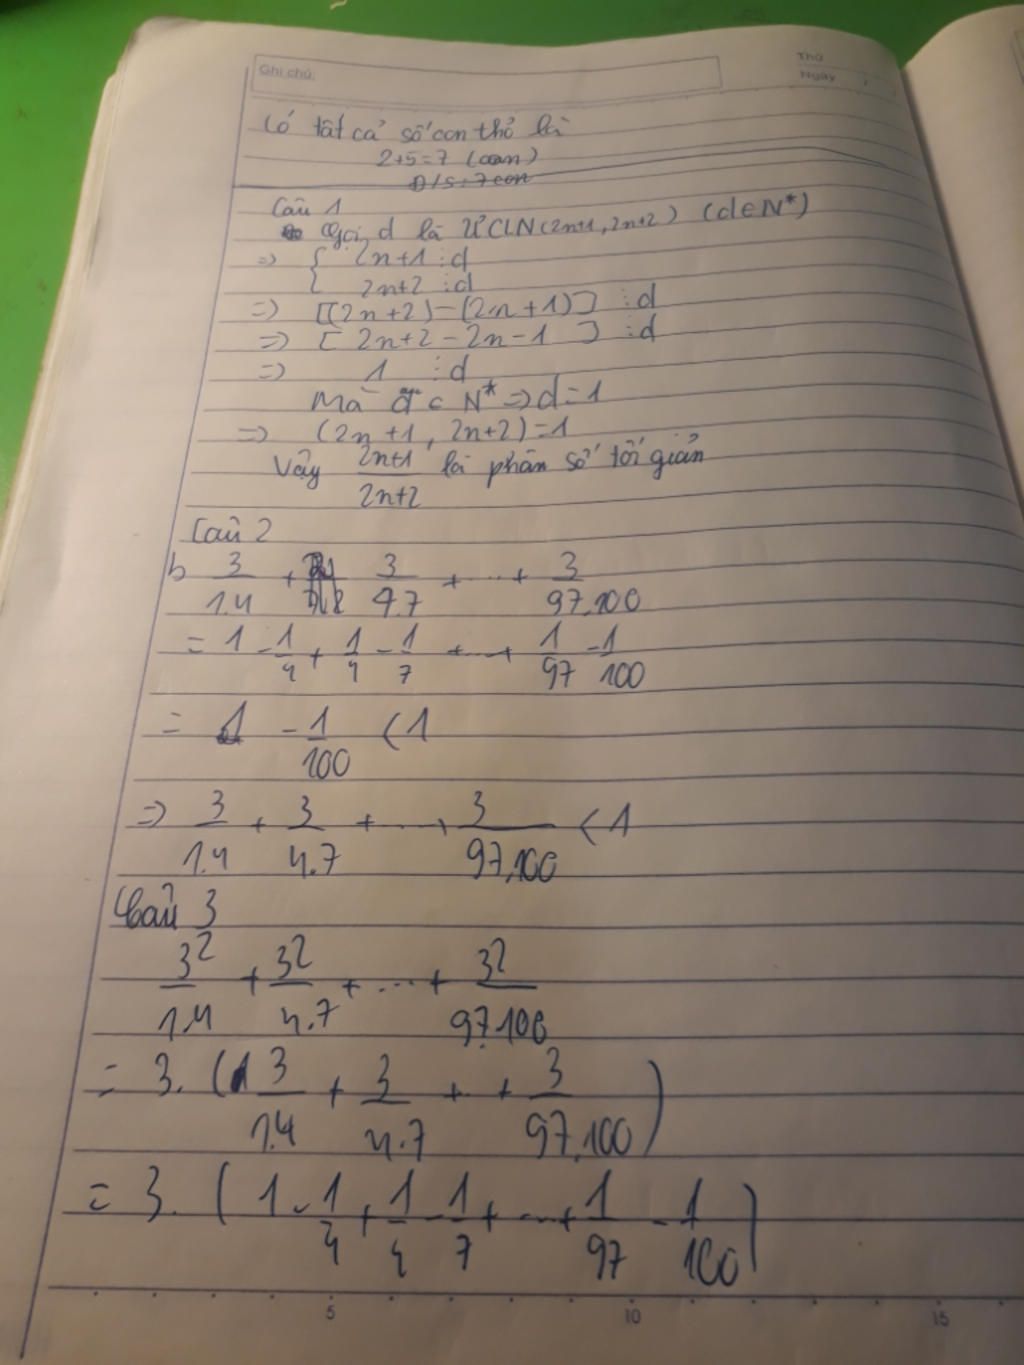 Ghi chú:
Thứ
Ngày
Có tất cả số con thỏ là
2+5=7 (con)
Đ/S: 7 con
Câu 1
Gọi d là ƯCLN(2n+1, 2n+2) (d∈N*)
=> { 2n+1 ⋮ d
2n+2 ⋮ d
=> [(2n+2)-(2n+1)] ⋮ d
=> [2n+2-2n-1] ⋮ d
=> 1 ⋮ d
Mà d ∈ N* => d=1
=> (2n+1, 2n+2)=1
Vậy 2n+1/2n+2 là phân số tối giản
Câu 2
b 3/1.4 + 3/4.7 + ... + 3/97.100
= 1 - 1/4 + 1/4 - 1/7 + ... + 1/97 - 1/100
= 1 - 1/100 < 1
=> 3/1.4 + 3/4.7 + ... + 3/97.100 < 1
Câu 3
3²/1.4 + 3²/4.7 + ... + 3²/97.100
= 3. (3/1.4 + 3/4.7 + .. + 3/97.100)
= 3. (1 - 1/4 + 1/4 - 1/7 + ... + 1/97 - 1/100)
5 10 15